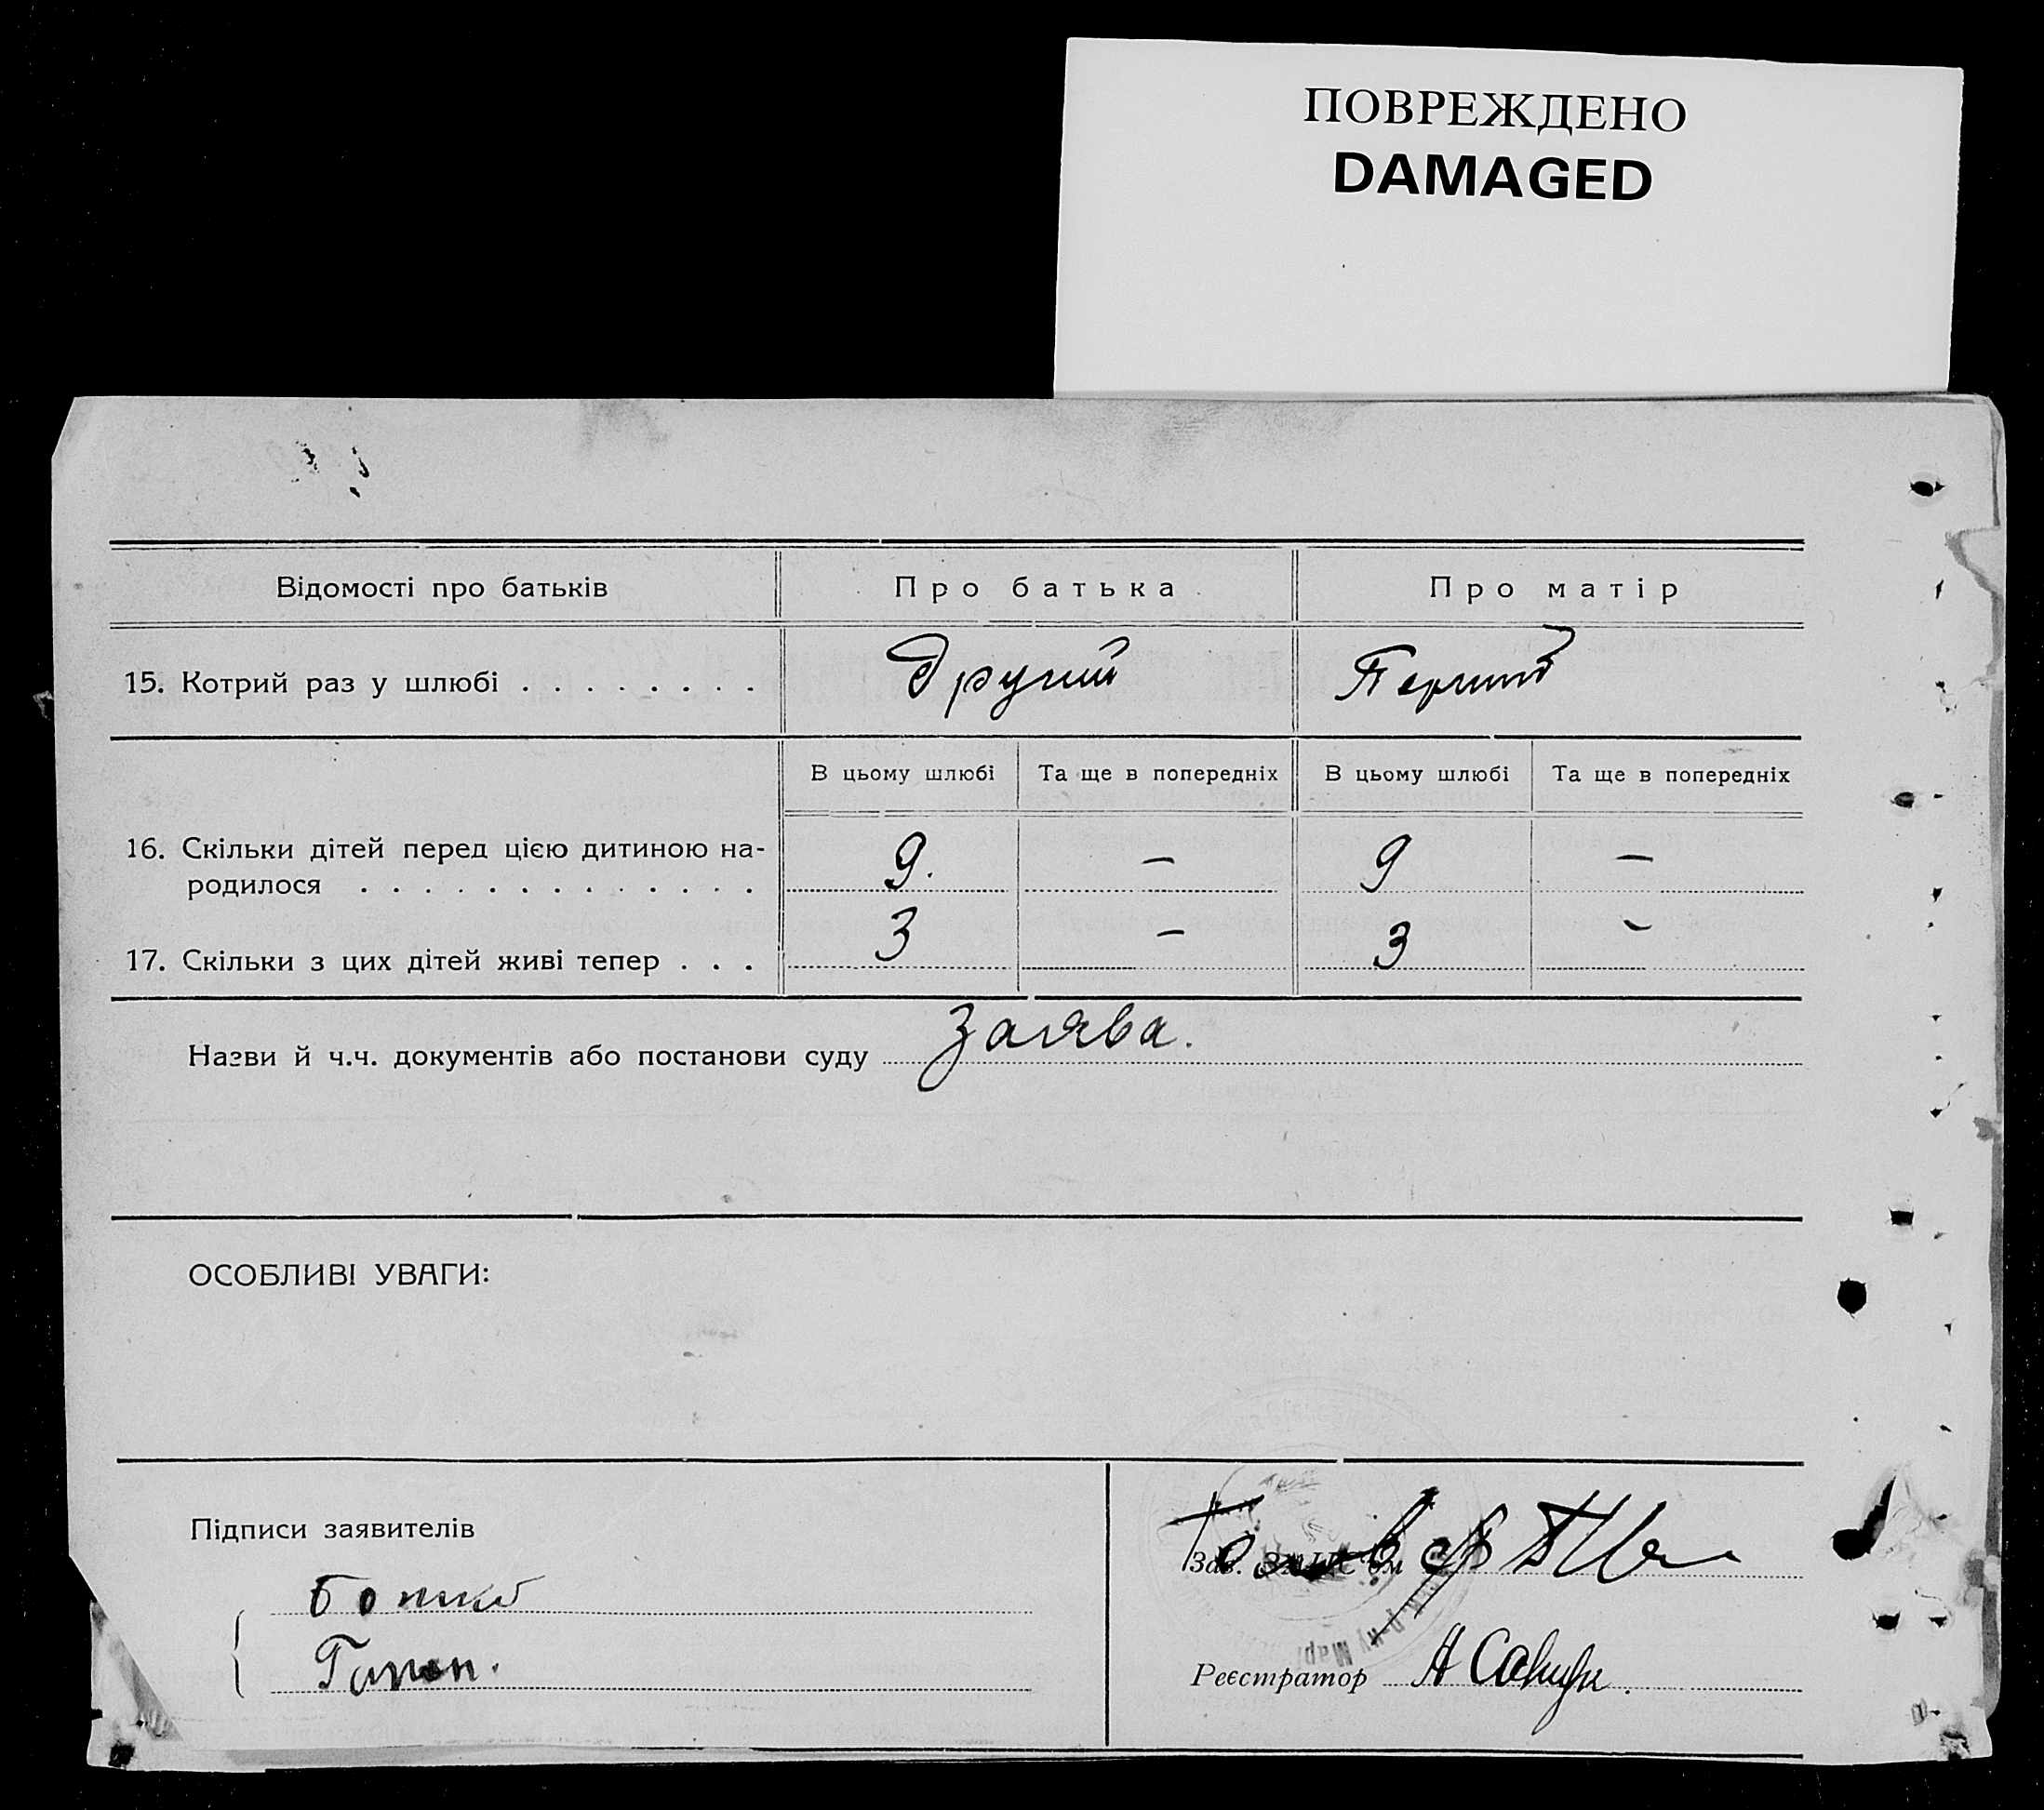 ПОВРЕЖДЕНО
DAMAGED
Відомості про батьків
Про батька
Про матір
15. Котрий раз у шлюбі . . . . . . . .
Другий
Перший
В цьому шлюбі
Та ще в попередніх
В цьому шлюбі
Та ще в попередніх
16. Скільки дітей перед цією дитиною на-
родилося . . . . . . . . . . . . .
9.
—
9
—
17. Скільки з цих дітей живі тепер . . .
3
—
3
-
Назви й ч.ч. документів або постанови суду
Заява.
ОСОБЛИВІ УВАГИ:
Підписи заявителів
Зав. ЗАГС'ом
Реєстратор